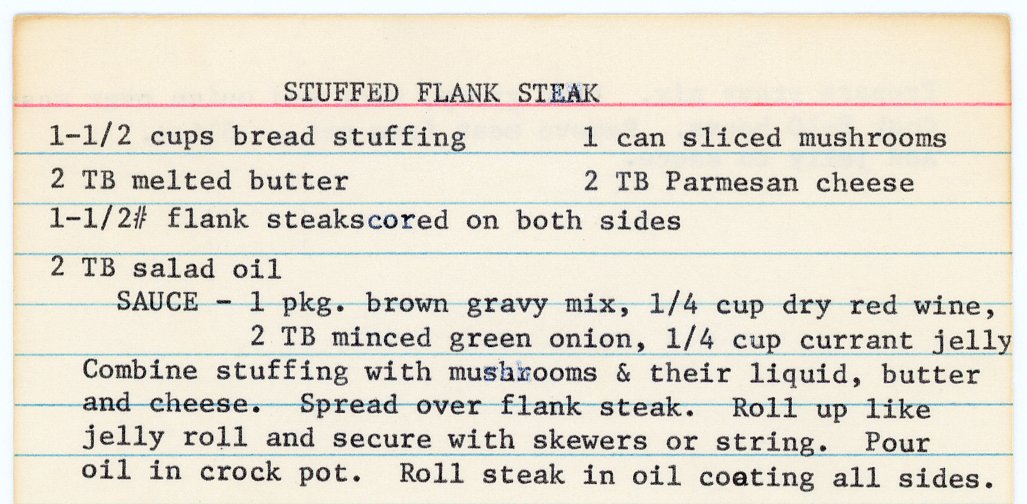 STUFFED FLANK STEAK
1-1/2 cups bread stuffing 1 can sliced mushrooms
2 TB melted butter 2 TB Parmesan cheese
1-1/2# flank steakscored on both sides
2 TB salad oil
SAUCE - 1 pkg. brown gravy mix, 1/4 cup dry red wine,
2 TB minced green onion, 1/4 cup currant jelly
Combine stuffing with mushrooms & their liquid, butter
and cheese. Spread over flank steak. Roll up like
jelly roll and secure with skewers or string. Pour
oil in crock pot. Roll steak in oil coating all sides.